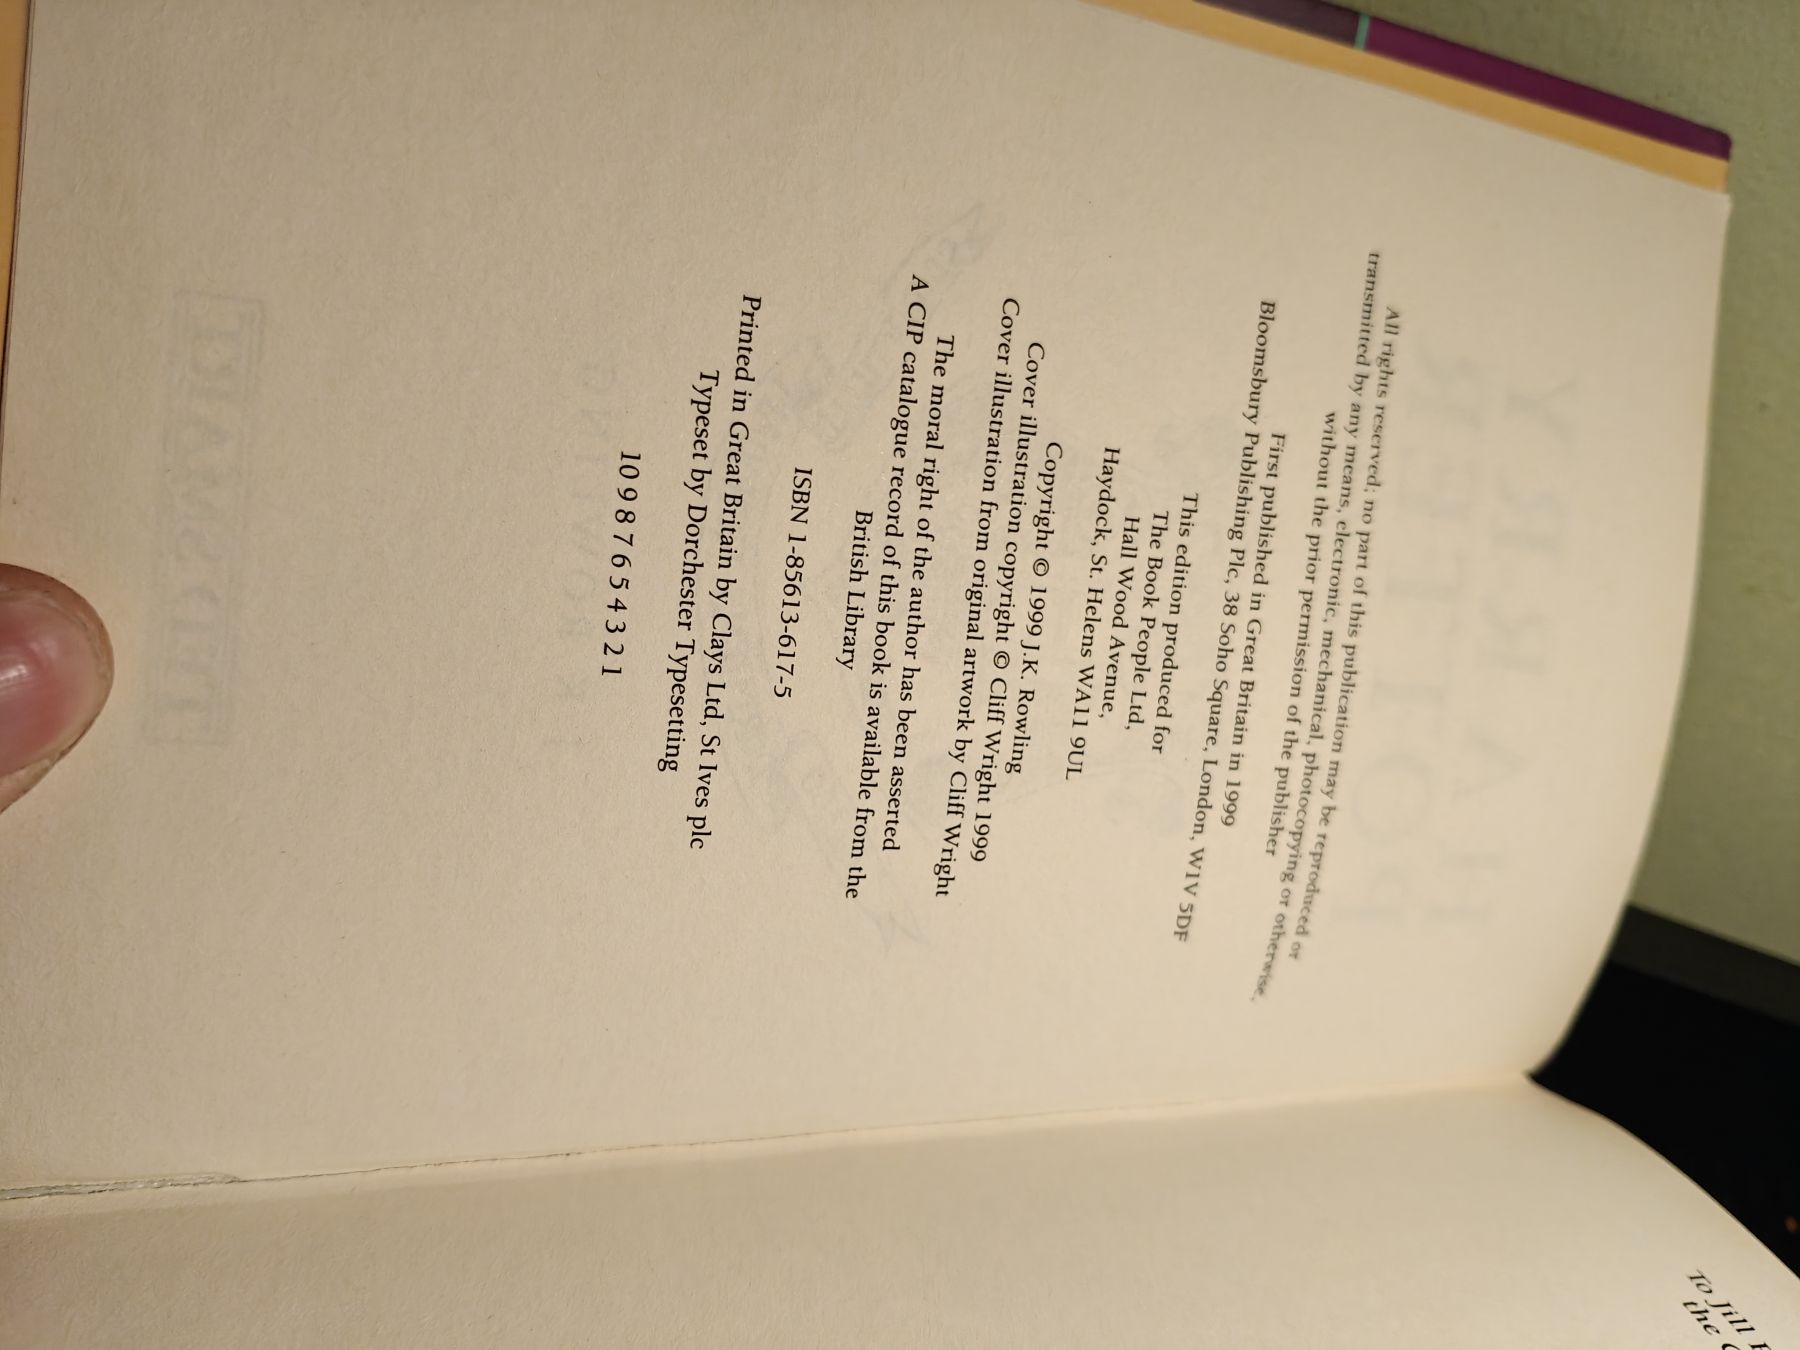 All rights reserved; no part of this publication may be reproduced or
transmitted by any means, electronic, mechanical, photocopying or otherwise,
without the prior permission of the publisher
First published in Great Britain in 1999
Bloomsbury Publishing Plc, 38 Soho Square, London, W1V 5DF
This edition produced for
The Book People Ltd,
Hall Wood Avenue,
Haydock, St. Helens WA11 9UL
Copyright © 1999 J.K. Rowling
Cover illustration copyright © Cliff Wright 1999
Cover illustration from original artwork by Cliff Wright
The moral right of the author has been asserted
A CIP catalogue record of this book is available from the
British Library
ISBN 1-85613-617-5
Printed in Great Britain by Clays Ltd, St Ives plc
Typeset by Dorchester Typesetting
10 9 8 7 6 5 4 3 2 1
To Jill
the